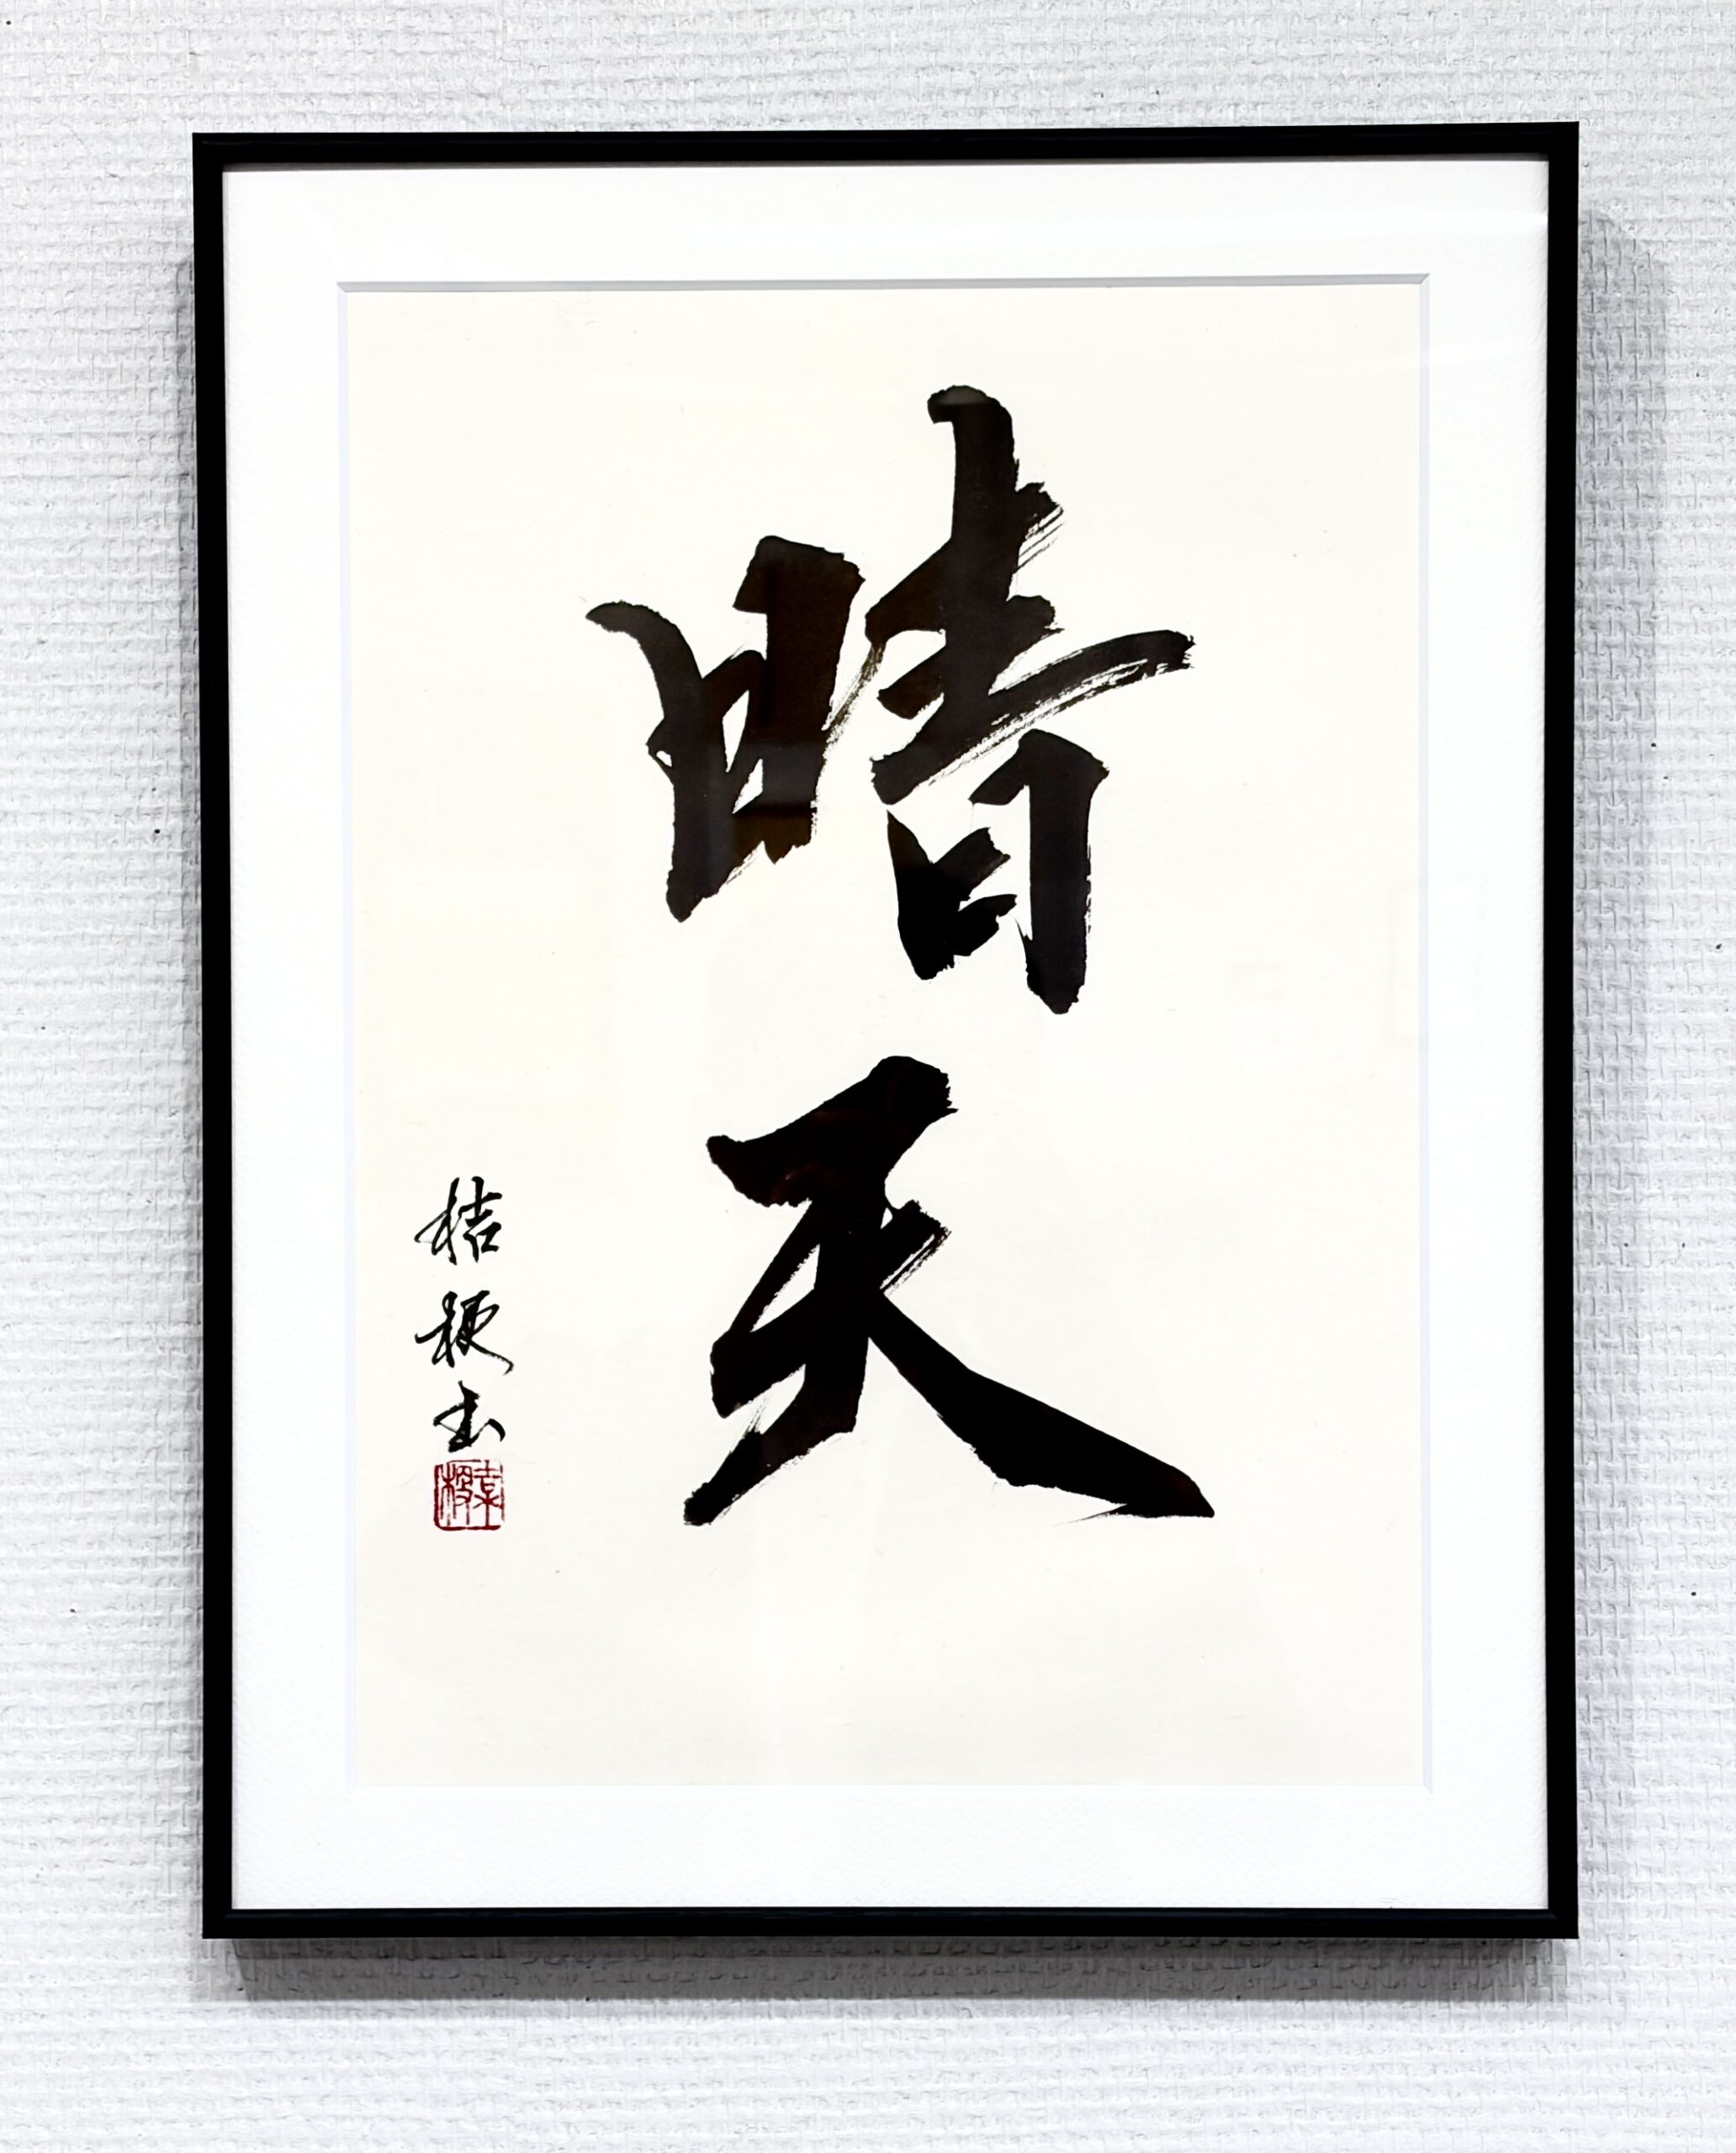 晴天
桔梗書